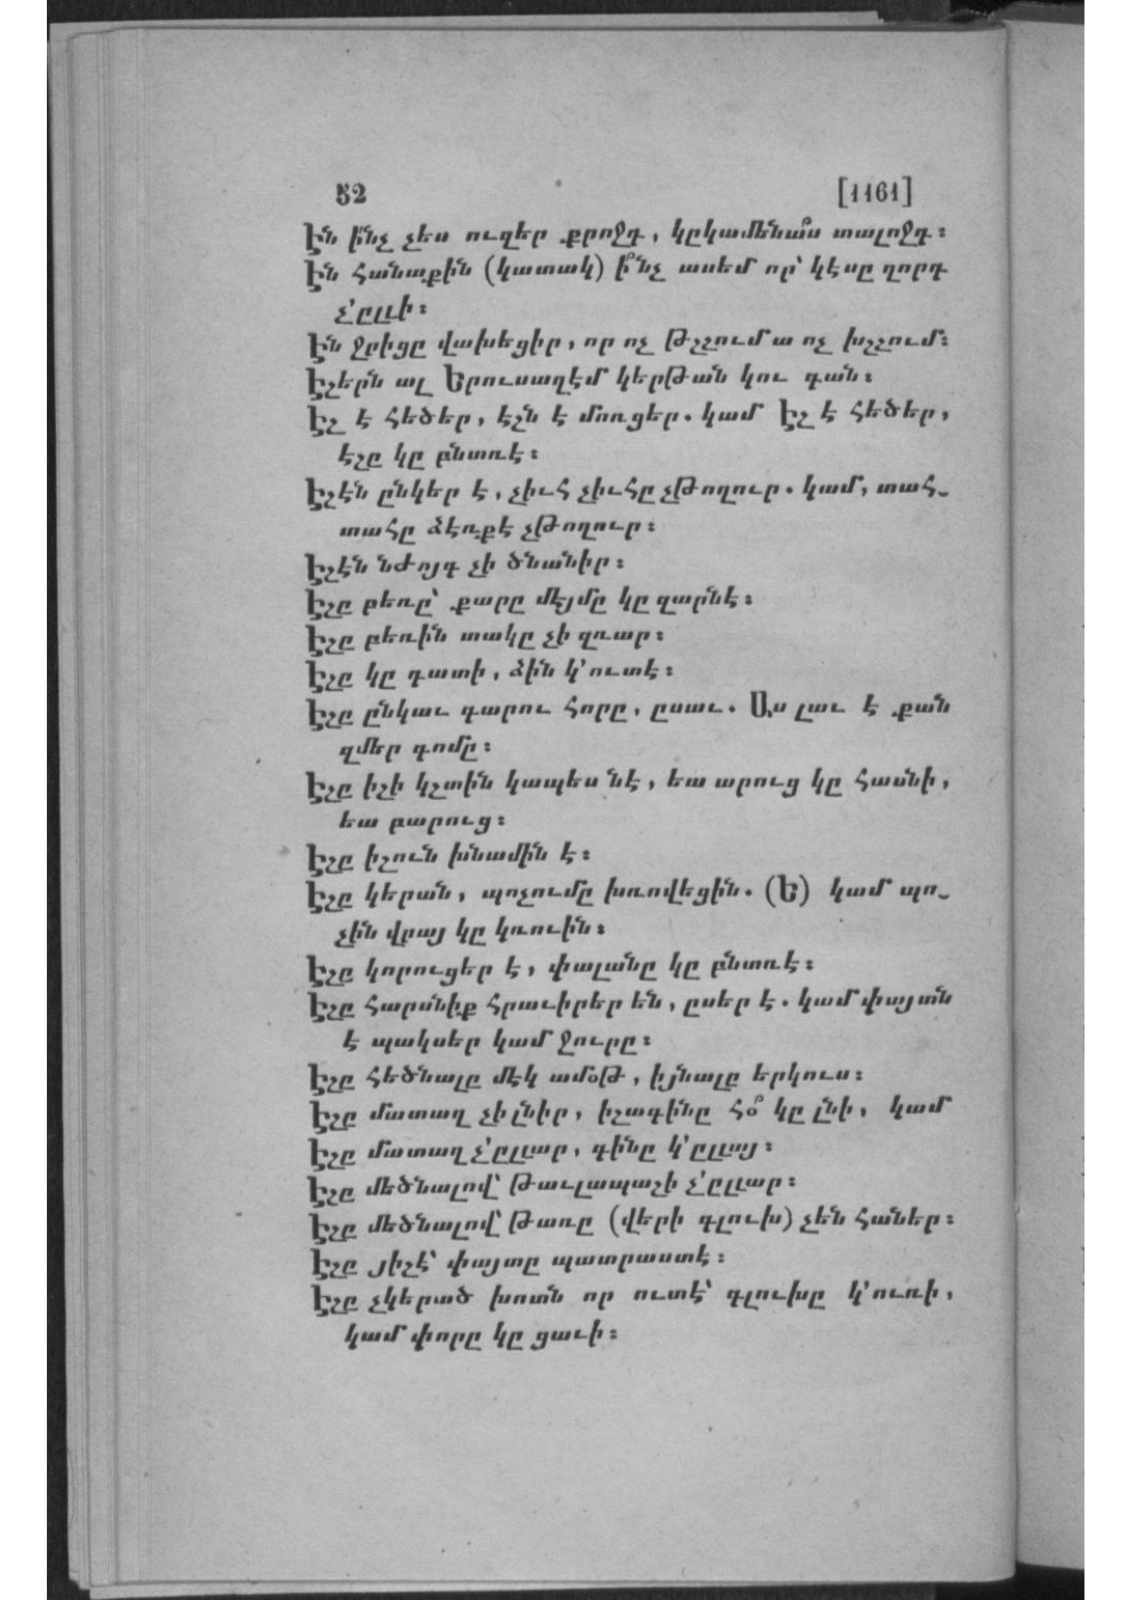 52 [1161]
Էն ի՞նչ չես ուզեր քրոջդ, կըկամենա՞ս տալոջդ։
Էն հանաքին (կատակ) ի՞նչ ասեմ որ՝ կէսը ղորդ
չ'ըլլի։
Էն ջրիցը վախեցիր, որ ոչ թշշում ա ոչ խշշում։
Էշերն ալ Երուսաղէմ կերթան կու գան։
Էշ է հեծեր, էշն է մոռցեր. կամ Էշ է հեծեր,
էշը կը բնտռէ։
Էշէն ընկեր է, չիւհ չիւհը չթողուր. կամ, տահ-
տահը ձէռքէ չթողուր։
Էշէն նժոյգ չի ծնանիր։
Էշը բեռը՝ քարը մէյմը կը զարնէ։
Էշը բեռին տակը չի զռար։
Էշը կը դատի, ձին կ'ուտէ։
Էշը ընկաւ գարու հորը, ըսաւ. Աս լաւ է քան
զմեր գոմը։
Էշը իշի կշտին կապես նէ, եա արուց կը հասնի,
եա բարուց։
Էշը իշուն խնամին է։
Էշը կերան, պոչումը խռովեցին. (Ե) կամ պո-
չին վրայ կը կռուին։
Էշը կորուցեր է, փալանը կը բնտռէ։
Էշը հարսնիք հրաւիրեր են, ըսեր է. կամ փայտն
է պակսեր կամ ջուրը։
Էշը հեծնալը մէկ ամօթ, իյնալը երկուս։
Էշը մատաղ չի լնիր, իշագինը հօ՞ կը լնի, կամ
Էշը մատաղ չ'ըլլար, գինը կ'ըլլայ։
Էշը մեծնալով՝ Թաւլապաշի չ'ըլլար։
Էշը մեծնալով՝ Թառը (վերի գլուխ) չեն հաներ։
Էշը յիշէ՝ փայտը պատրաստէ։
Էշը չկերած խոտն որ ուտէ՝ գլուխը կ'ուռի,
կամ փորը կը ցաւի։